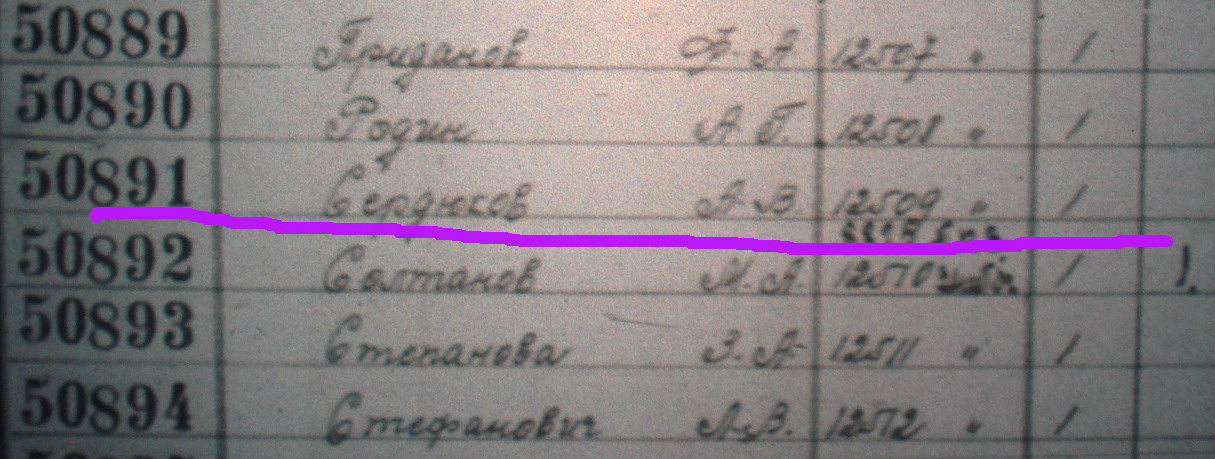 50889 Груданов Ф. А 12507 " 1
50890 Родин А. Г. 12508 " 1
50891 Сердюков А. В. 12509 " 1
50892 Солтанов М. А. 12510 1 1.
50893 Степанова З. А 12511 " 1
50894 Стефанович А. В. 12512 " 1